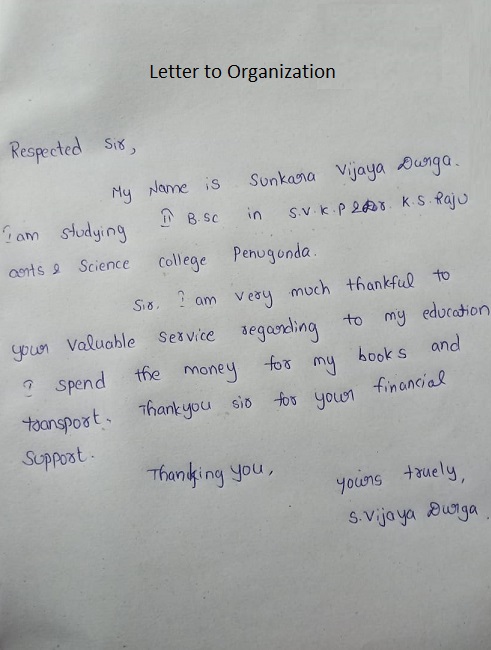 Letter to Organization
Respected Sir,
My Name is Sunkara Vijaya Durga.
I am studying II B.SC in S.V.K.P & Dr. K.S. Raju
arts & Science college Penugonda.
Sir, I am very much thankful to
your valuable service regarding to my education
I spend the money for my books and
transport. Thankyou sir for your financial
Support.
Thanking you,
yours truely,
S. Vijaya Durga.